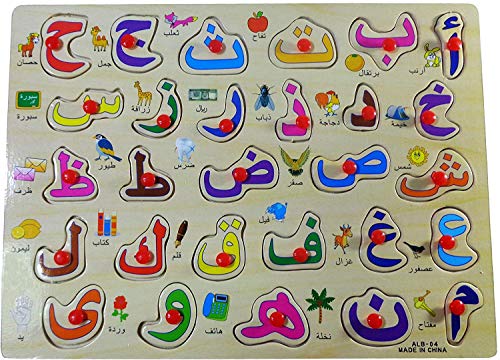 أ ب ت ث ج ح
أرنب برتقال تفاح ثعلب جمل حصان
خ د ذ ر ز س
خيمة دجاجة ذباب ريال زرافة سبورة
ش ص ض ط ظ
شمس صقر ضرس طيور ظرف
ع غ ف ق ك ل
عصفور غزال فيل قلم كتاب ليمون
م ن هـ و ى
مفتاح نخلة هاتف وردة يد
ALB-04
MADE IN CHINA